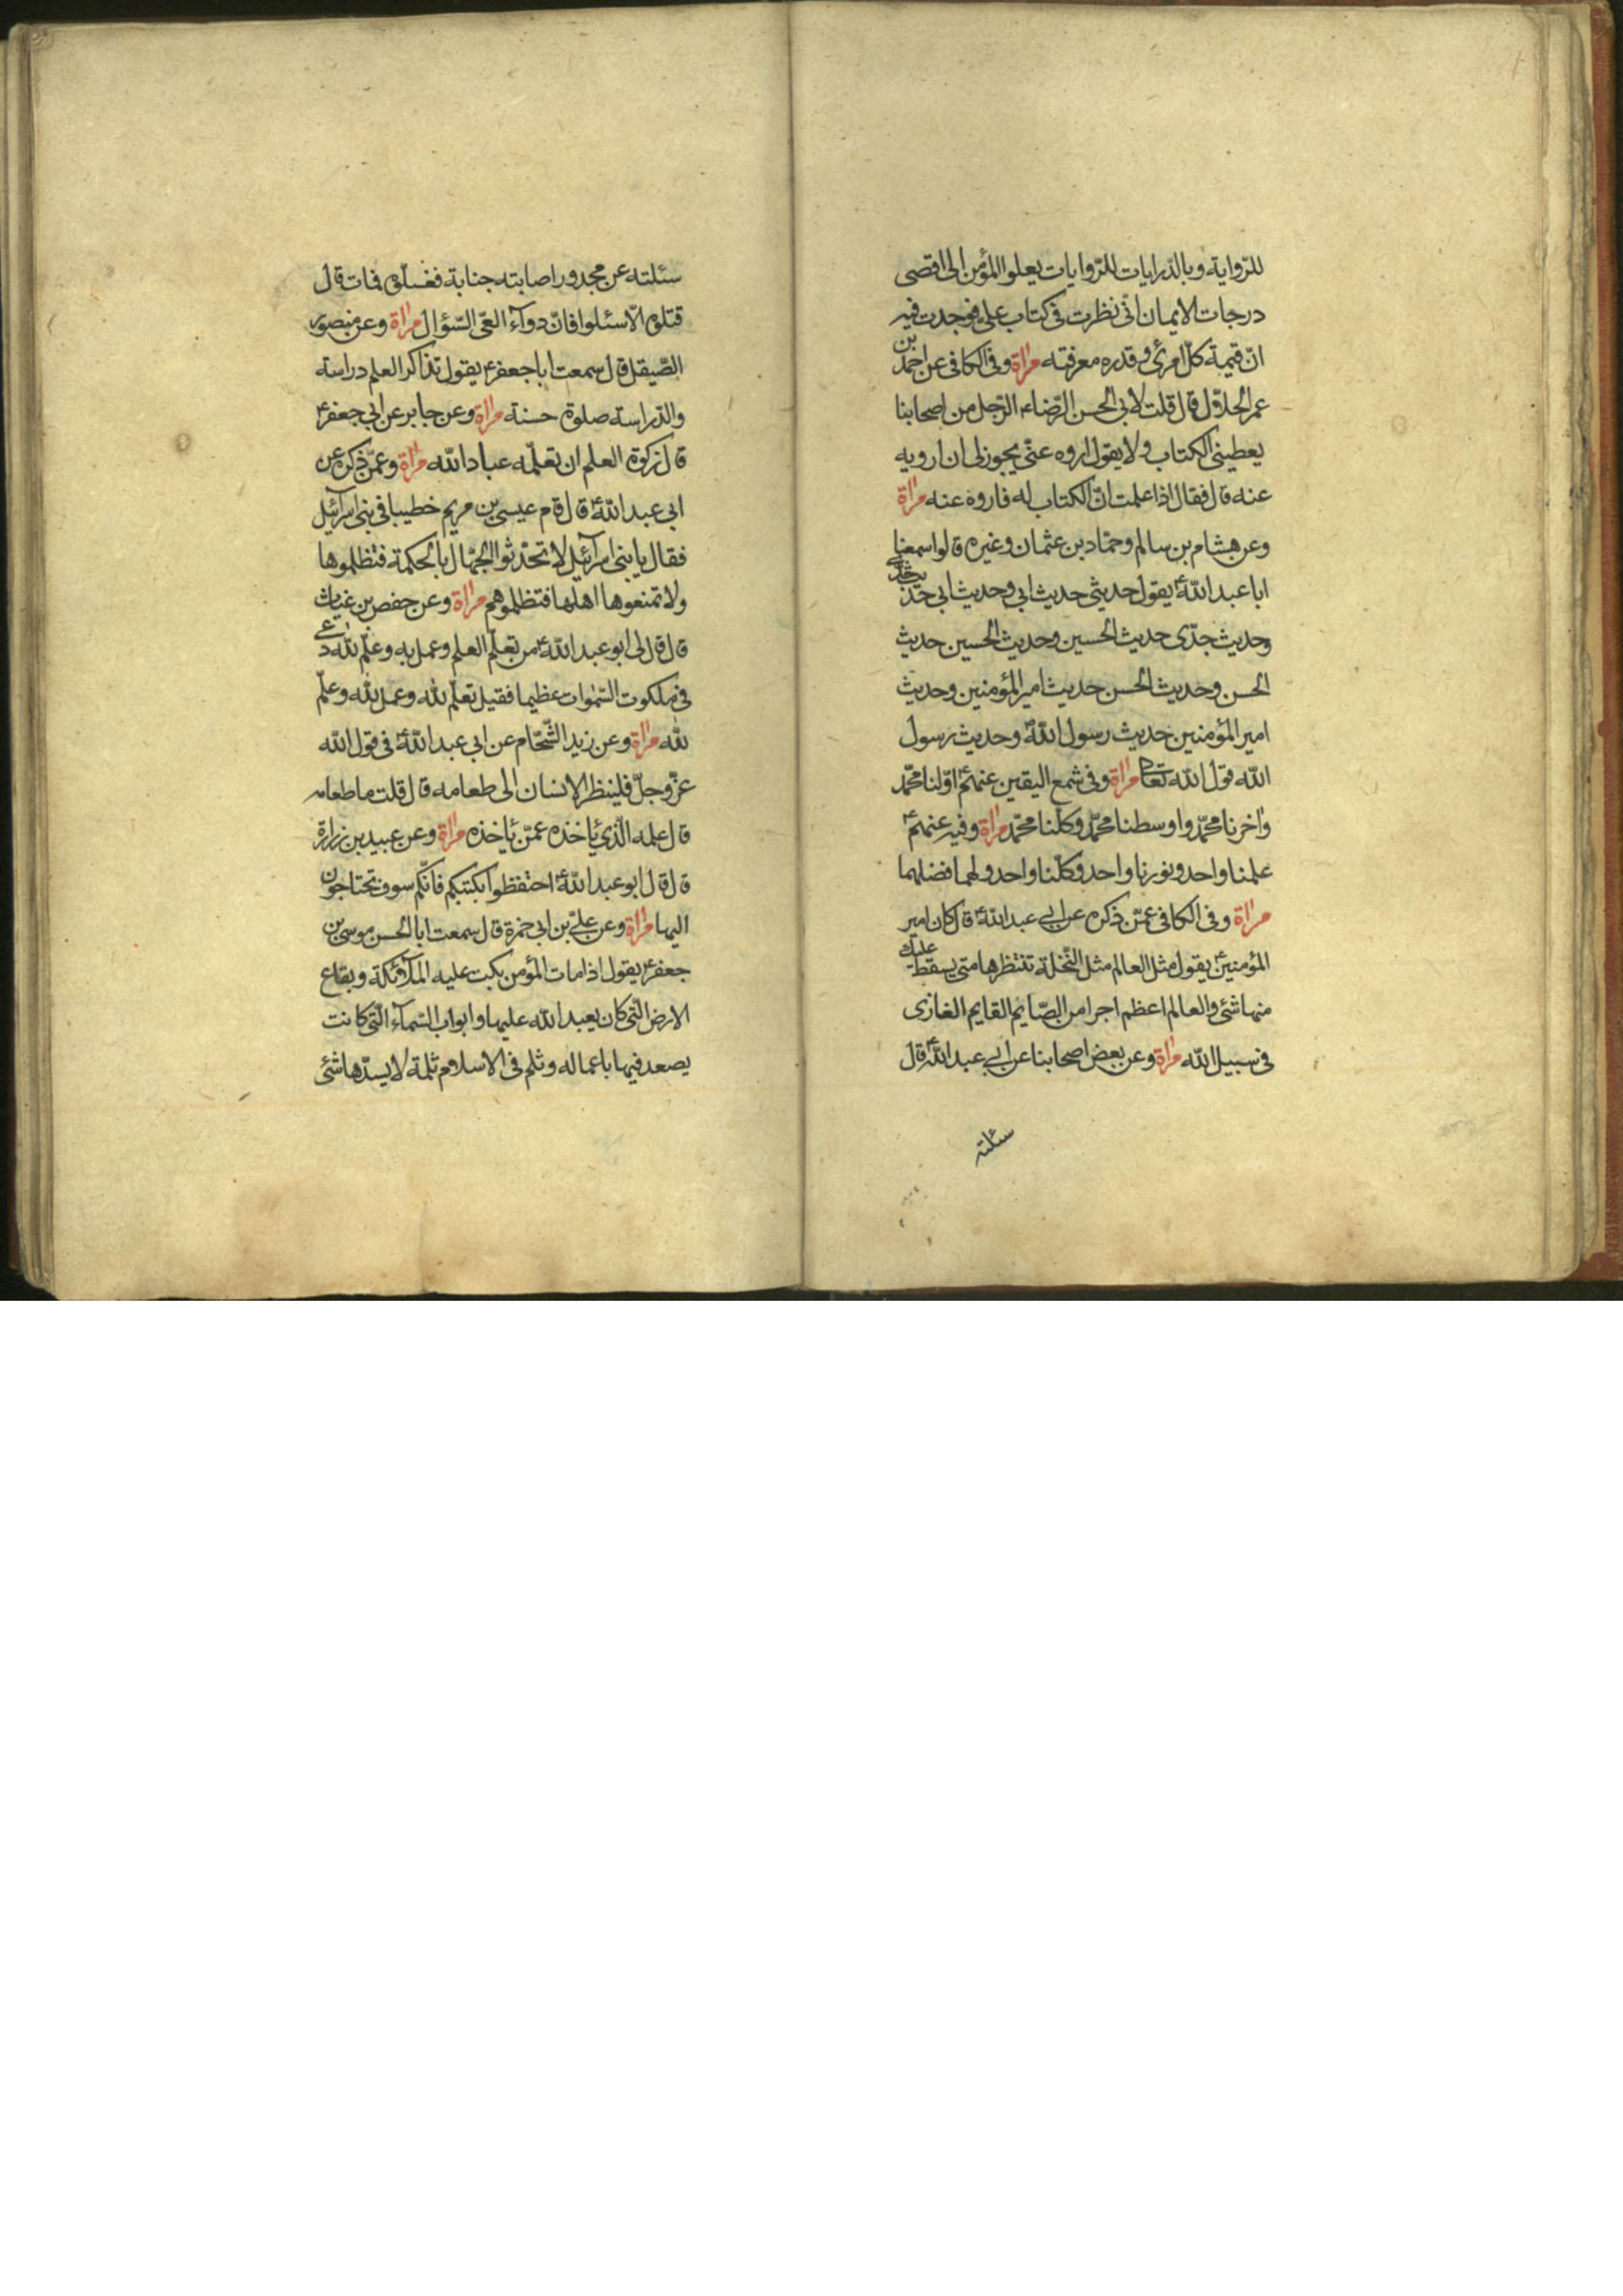 للرّواية وبالدّرايات للرّوايات يعلوا المؤمن الى اقصى
درجات الايمان انّى نظرت فى كتاب علىّ فوجدت فيه
انّ قيمة كلّ امرئ و قدره معرفته مراة وفى الكافى عن احمد بن
عمر الحلاّل قال قلت لابى الحسن الرّضاء الرّجل من اصحابنا
يعطينى الكتاب ولا يقول اروه عنّى يجوز لى ان ارويه
عنه قال فقال اذا علمت انّ الكتاب له فاروه عنه مراة
وعن هشام بن سالم وحمّاد بن عثمان وغيره قالوا سمعنا
ابا عبد اللّهؑ يقول حديثى حديث ابى وحديث ابى حديث جدّى
وحديث جدّى حديث الحسين وحديث الحسين حديث
الحسن وحديث الحسن حديث امير المؤمنين وحديث
امير المؤمنين حديث رسول اللّه وحديث رسول
اللّه قول اللّه تعالى مراة وفى شمع اليقين عنهمؑ اوّلنا محمّد
واخرنا محمّد واوسطنا محمّد وكلّنا محمّد مراة وفيه عنهمؑ
علمنا واحد ونورنا واحد وكلّنا واحد ولهما فضلهما
مراة وفى الكافى عمّن ذكره عن ابى عبد اللّهؑ قال كان امير
المؤمنينؑ يقول مثل العالم مثل النّخلة تنتظرها متى يسقط عليك
منها شئ والعالم اعظم اجرا من الصّايم القايم الغازى
فى سبيل اللّه مراة وعن بعض اصحابنا عن ابى عبد اللّهؑ قال
سئلته
سئلته عن مجدور اصابته جنابة فغسلوه فمات قال
قتلوه الاّ سئلوا فانّ دوآء العىّ السّؤال مراة وعن منصور
الصّيقل قال سمعت ابا جعفرؑ يقول تذاكر العلم دراسة
والدّراسة صلوة حسنة مراة وعن جابر عن ابى جعفرؑ
قال زكوة العلم ان تعلّمه عباد اللّه مراة وعمّن ذكره عن
ابى عبد اللّهؑ قال قام عيسى بن مريم خطيبا فى بنى اسرآئيل
فقال يا بنى اسرآئيل لا تحدّثوا الجهّال بالحكمة فتظلموها
ولا تمنعوها اهلها فتظلموهم مراة وعن حفص بن غياث
قال قال لى ابو عبد اللّهؑ من تعلّم العلم وعمل به وعلّم للّه دعى
فى ملكوت السّموات عظيما فقيل تعلّم للّه وعمل للّه وعلّم
للّه مراة وعن زيد الشّحّام عن ابى عبد اللّهؑ فى قول اللّه
عزّ وجلّ فلينظر الانسان الى طعامه قال قلت ما طعامه
قال علمه الّذى يأخذه عمّن يأخذه مراة وعن عبيد بن زرارة
قال قال ابو عبد اللّهؑ احتفظوا بكتبكم فانّكم سوف تحتاجون
اليها مراة وعن علىّ بن ابى حمزة قال سمعت ابا الحسن موسى بن
جعفرؑ يقول اذا مات المؤمن بكت عليه الملآئكة وبقاع
الارض الّتى كان يعبد اللّه عليها وابواب السّمآء الّتى كانت
يصعد فيها باعماله وثلم فى الاسلام ثلمة لا يسدّها شئ